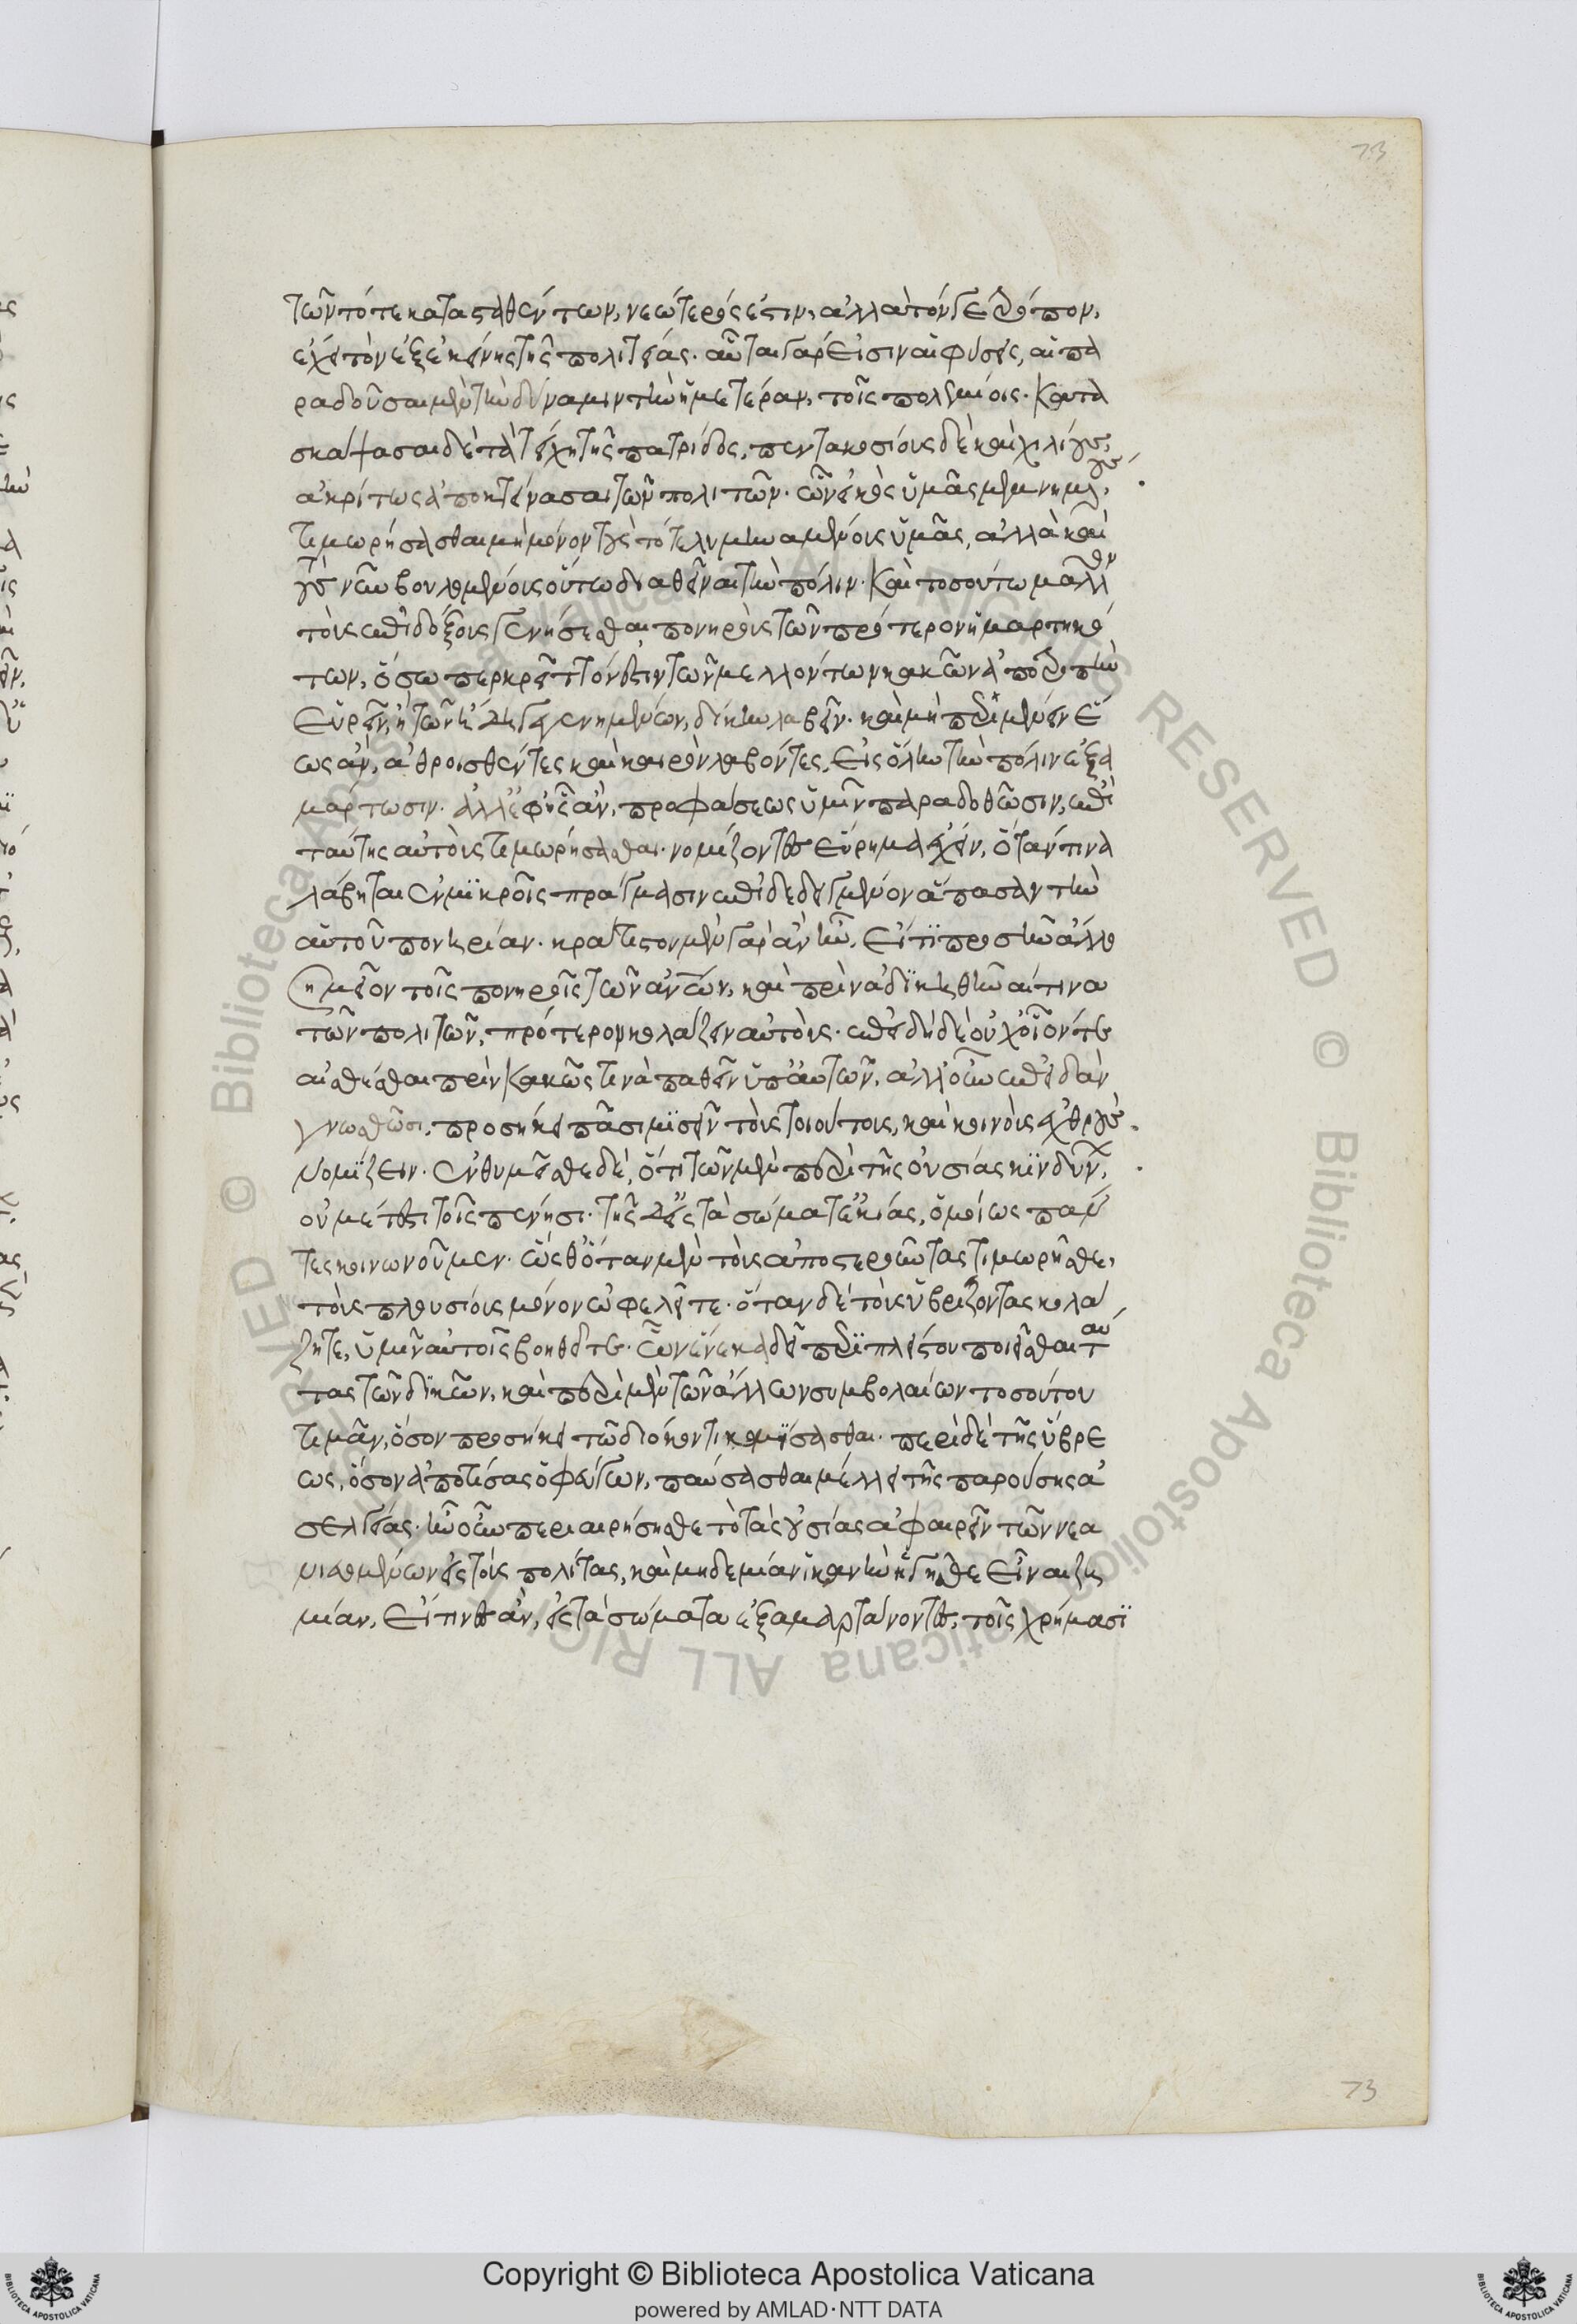 τῶν τότε κατασταθέντων, νεώτερός ἐστιν, ἀλλὰ τόν γε τρόπον,
ἔχει τὸν ἐξ ἐκείνης τῆς πολιτείας. αὗται γάρ εἰσιν αἱ φύσεις, αἱ πα
ραδοῦσαι μὲν τὴν δύναμιν τὴν ἡμετέραν, τοῖς πολεμίοις. κατα
σκάψασαι δὲ τὰ τείχη τῆς πατρίδος, πεντακοσίους δὲ καὶ χιλίους,
ἀκρίτως ἀποκτείνασαι τῶν πολιτῶν. ὧν εἰκὸς ὑμᾶς μεμνημένους,
τιμωρήσασθαι μὴ μόνον τοὺς τότε λυμηναμένοις ὑμᾶς, ἀλλὰ καὶ
τοὺς νῦν βουλομένοις οὕτω διαθεῖναι τὴν πόλιν. καὶ τοσούτω μᾶλλον
τοὺς ἐπιδόξους γενήσεσθαι πονηροὺς τῶν πρότερον ἡμαρτηκό
των, ὅσω περ κρεῖττόν ἐστιν τῶν μελλόντων κακῶν ἀποτροπὴν
εὑρεῖν, ἢ τῶν ἤδη γεγενημένων, δίκην λαβεῖν. καὶ μὴ περιμένειν ἕ
ως ἂν, ἀθροισθέντες καὶ καιρὸν λαβόντες, εἰς ὅλην τὴν πόλιν ἐξα
μάρτωσιν. ἀλλ' ἐφ' ἧς ἂν, προφάσεως ὑμῖν παραδοθῶσιν, ἐπὶ
ταύτης αὐτοὺς τιμωρήσασθαι. νομίζοντες εὕρημα ἔχειν, ὅταν τινὰ
λάβηται ἐν μικροῖς πράγμασιν ἐπιδεδειγμένον ἅπασαν τὴν
αὑτοῦ πονηρίαν. κράτιστον μὲν γὰρ ἂν ἦν, εἴ τι προσῆν ἄλλο
σημεῖον τοῖς πονηροῖς τῶν ἀνθρώπων, καὶ πρὶν ἀδικηθῆναί τινα
τῶν πολιτῶν, πρότερον κολάζειν αὐτούς. ἐπειδὴ δὲ οὐχ οἷόν τε
αἰσθέσθαι πρὶν κακῶς τινὰ παθεῖν ὑπ' αὐτῶν, ἀλλ' οὖν ἐπειδὰν
γνωσθῶσι, προσήκει πᾶσι μισεῖν τοὺς τοιούτους, καὶ κοινοὺς ἐχθροὺς
νομίζειν. ἐνθυμεῖσθε δὲ, ὅτι τῶν μὲν περὶ τῆς οὐσίας κινδύνων,
οὐ μέτεστι τοῖς πένησι. τῆς δ' εἰς τὰ σώματ' αἰκίας, ὁμοίως πάν
τες κοινωνοῦμεν. ὥσθ' ὅταν μὲν τοὺς ἀποστεροῦντας τιμωρῆσθε,
τοὺς πλουσίους μόνον ὠφελεῖτε. ὅταν δὲ τοὺς ὑβρίζοντας κολά
ζητε, ὑμῖν αὐτοῖς βοηθεῖτε. ὧν ἕνεκα δεῖ περὶ πλείστου ποιεῖσθαι ταύ
τας τῶν δικῶν, καὶ περὶ μὲν τῶν ἄλλων συμβολαίων τοσούτου
τιμᾶν, ὅσον προσήκει τῶ διώκοντι κομίσασθαι. περὶ δὲ τῆς ὕβρε
ως, ὅσον ἀποτίσας ὁ φεύγων, παύσασθαι μέλλει τῆς παρούσης ἀ
σελγείας. ἢν οὖν περιαιρήσησθε τὸ τὰς οὐσίας ἀφαιρεῖν τῶν νεα
νιευομένων εἰς τοὺς πολίτας, καὶ μηδεμίαν ἱκανὴν ἡγῆσθε εἶναι ζη
μίαν, οἵτινες ἂν, εἰς τὰ σώματα ἐξαμαρτάνοντες, τοῖς χρήμασι
73
73
Copyright © Biblioteca Apostolica Vaticana
powered by AMLAD·NTT DATA